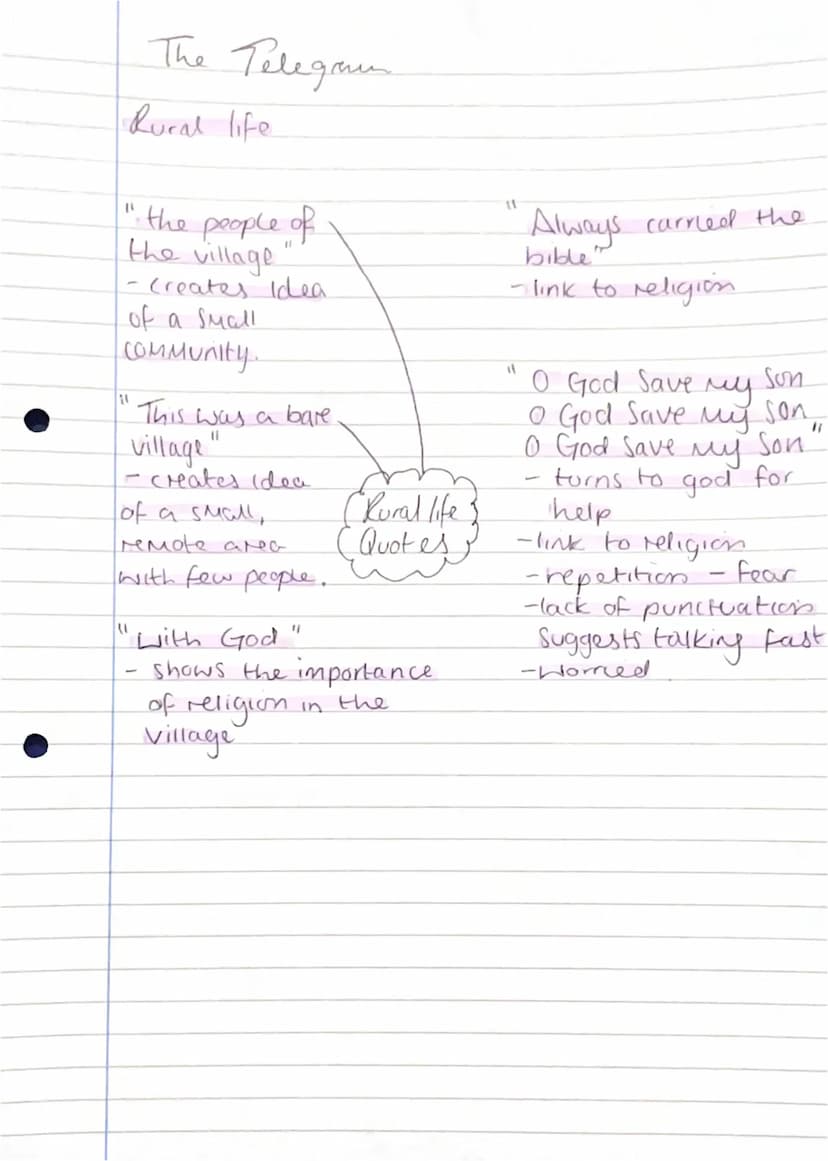 The Telegram
Rural life
"the people of
the village"
- creates idea
of a small
community.
"This was a bare
village"
- creates idea
of a small,
remote area
with few people.
"With God"
- shows the importance
of religion in the
village
Rural life
Quotes
"Always carried the
bible"
- link to religion
"O God save my son
O God save my son
O God save my son"
- turns to god for
help
- link to religion
- repetition - fear
- lack of punctuation
suggests talking fast
- worried